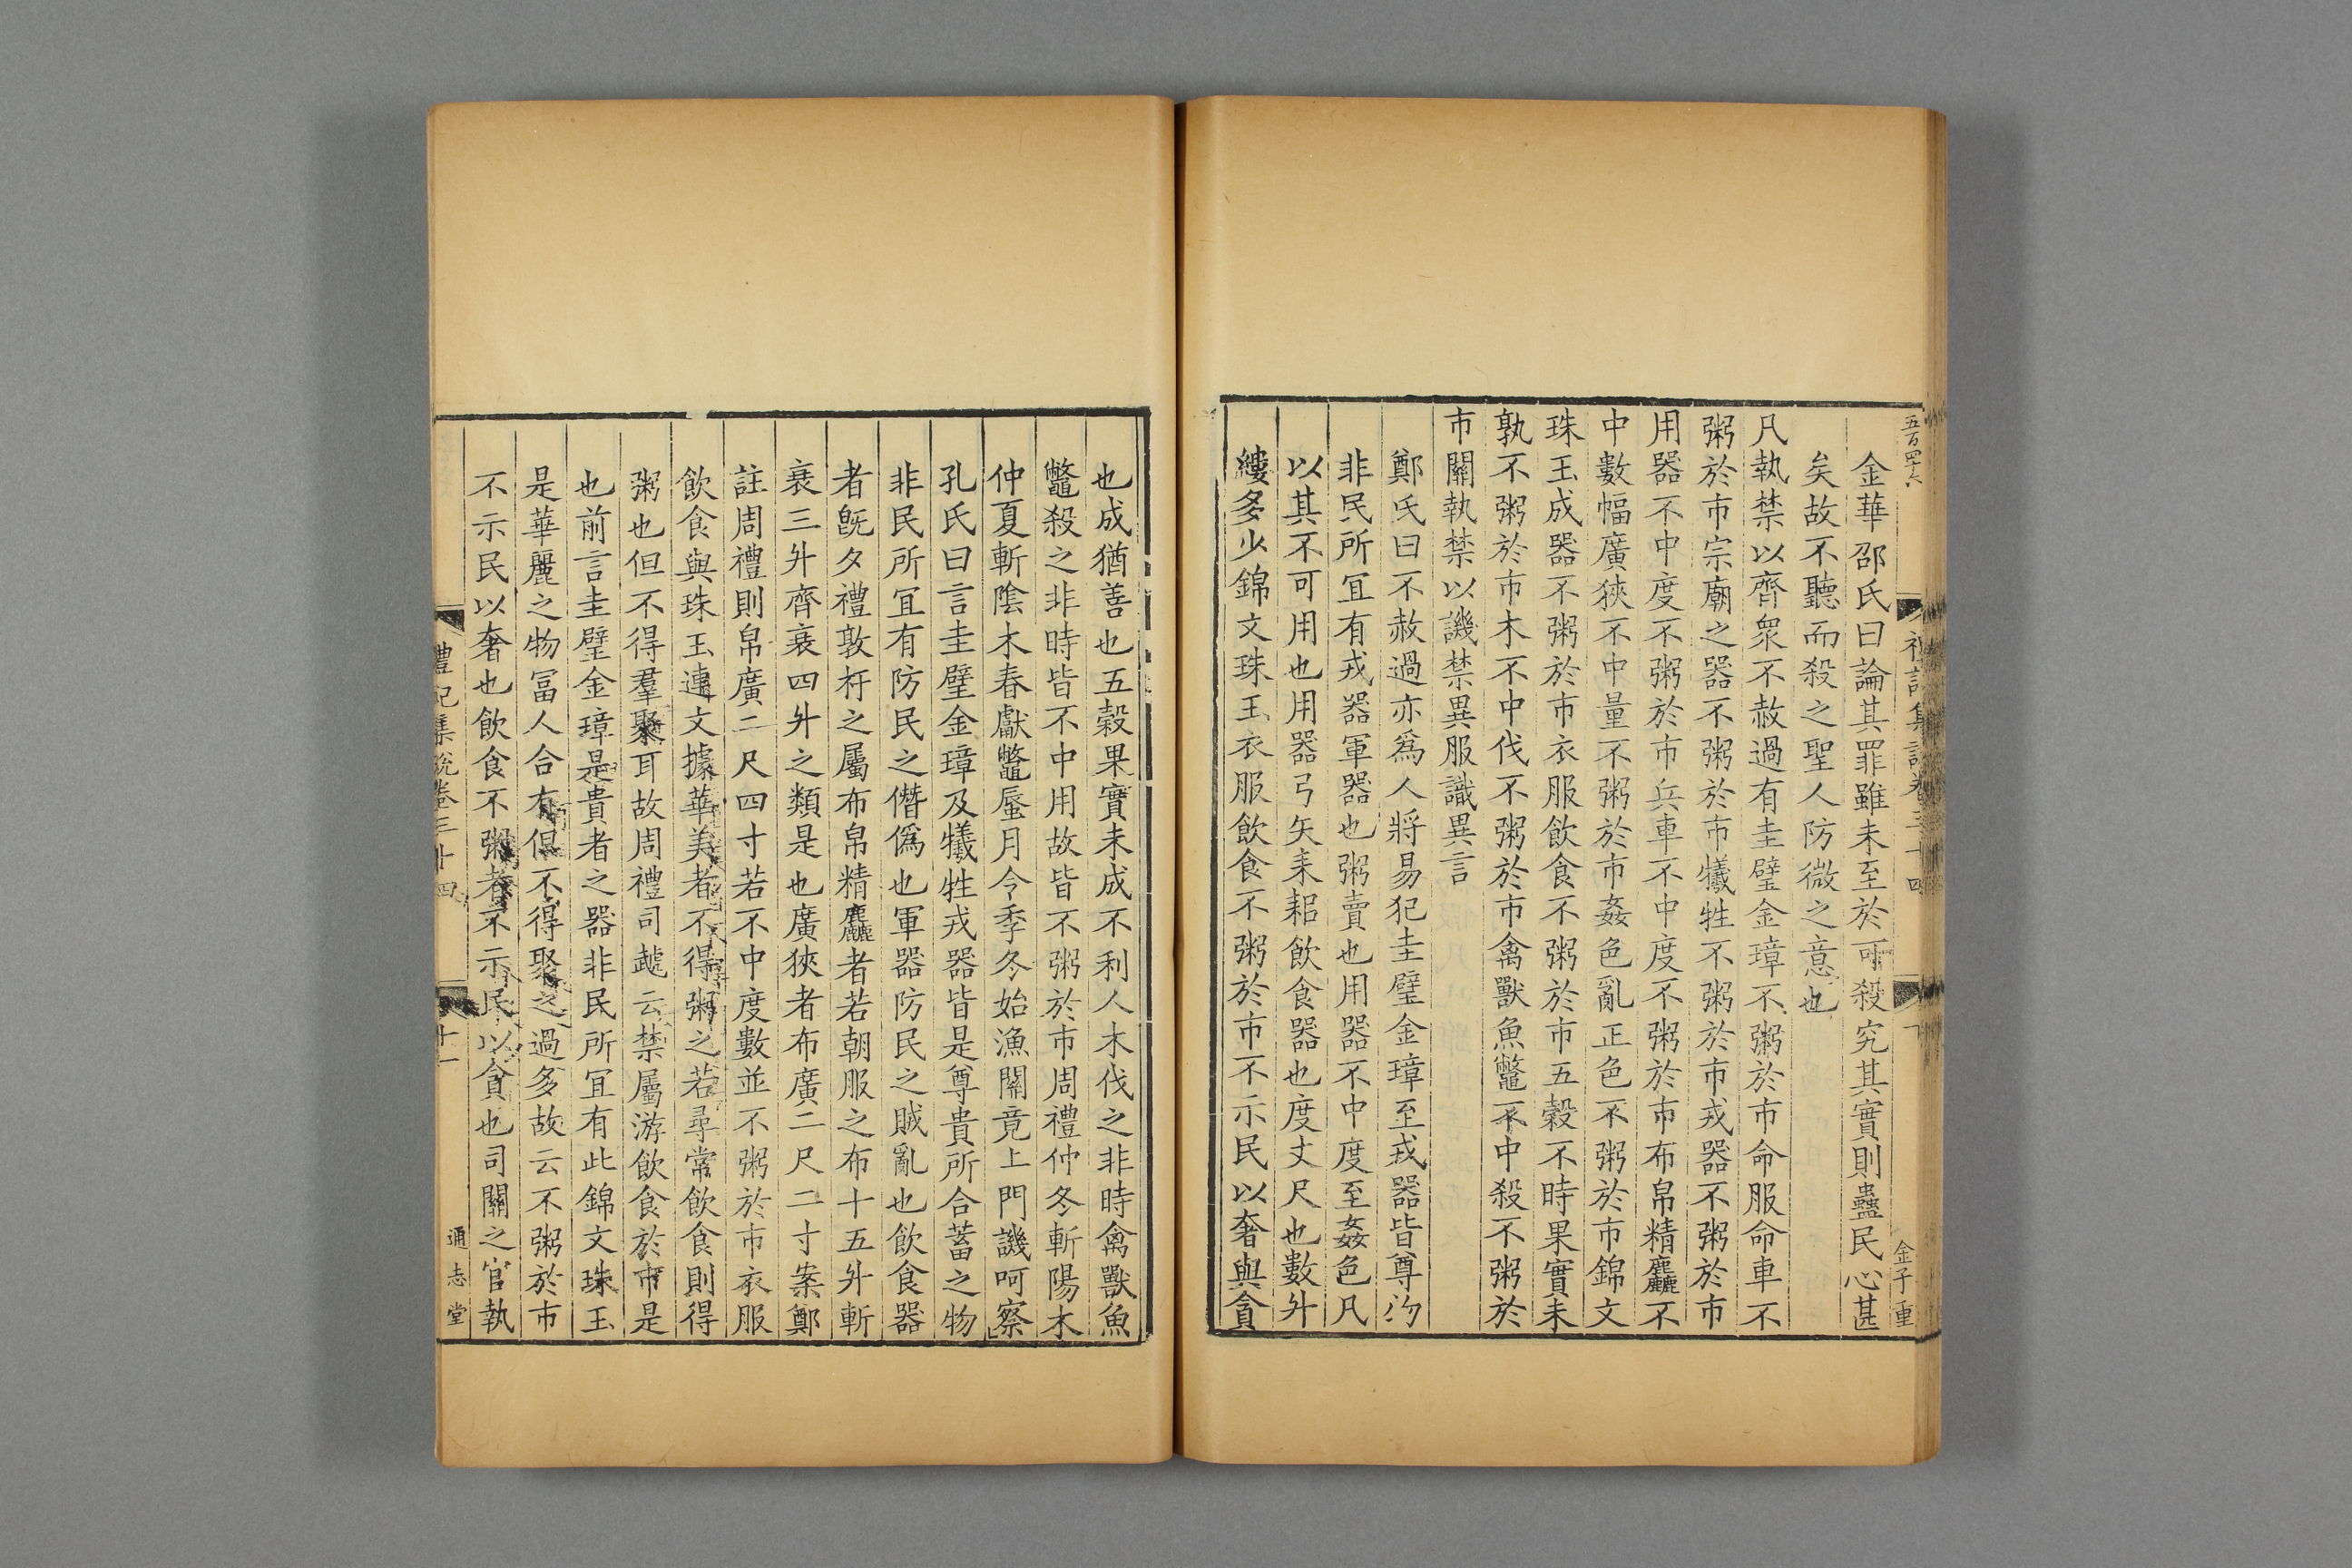 五百四十六
金華邵氏曰論其罪雖未至於可殺究其實則蠱民心甚
矣故不聽而殺之聖人防微之意也
凡執禁以齊衆不赦過有圭璧金璋不粥於市命服命車不
粥於市宗廟之器不粥於市犧牲不粥於市戎器不粥於市
用器不中度不粥於市兵車不中度不粥於市布帛精麤不
中數幅廣狹不中量不粥於市姦色亂正色不粥於市錦文
珠玉成器不粥於市衣服飲食不粥於市五穀不時果實未
孰不粥於市木不中伐不粥於市禽獸魚鼈不中殺不粥於
市關執禁以譏禁異服識異言
鄭氏曰不赦過亦爲人將易犯圭璧金璋至戎器皆尊物
非民所宜有戎器軍器也粥賣也用器不中度至姦色凡
以其不可用也用器弓矢耒耜飲食器也度丈尺也數升
縷多少錦文珠玉衣服飲食不粥於市不示民以奢與貪
金子重
也成猶善也五穀果實未成不利人木伐之非時禽獸魚
鼈殺之非時皆不中用故皆不粥於市周禮仲冬斬陽木
仲夏斬陰木春獻鼈蜃月令季冬始漁關竟上門譏呵察
孔氏曰言圭璧金璋及犧牲戎器皆是尊貴所合蓄之物
非民所宜有防民之僭僞也軍器防民之賊亂也飲食器
者旣夕禮敦杅之屬布帛精麤者若朝服之布十五升斬
衰三升齊衰四升之類是也廣狹者布廣二尺二寸案鄭
註周禮則帛廣二尺四寸若不中度數並不粥於市衣服
飲食與珠玉連文據華美者不得粥之若尋常飲食則得
粥也但不得羣聚耳故周禮司虣云禁屬游飲食於市是
也前言圭璧金璋是貴者之器非民所宜有此錦文珠玉
是華麗之物富人合有但不得聚之過多故云不粥於市
不示民以奢也飲食不粥者不示民以貪也司關之官執
禮記集說卷三十四
十一
通志堂